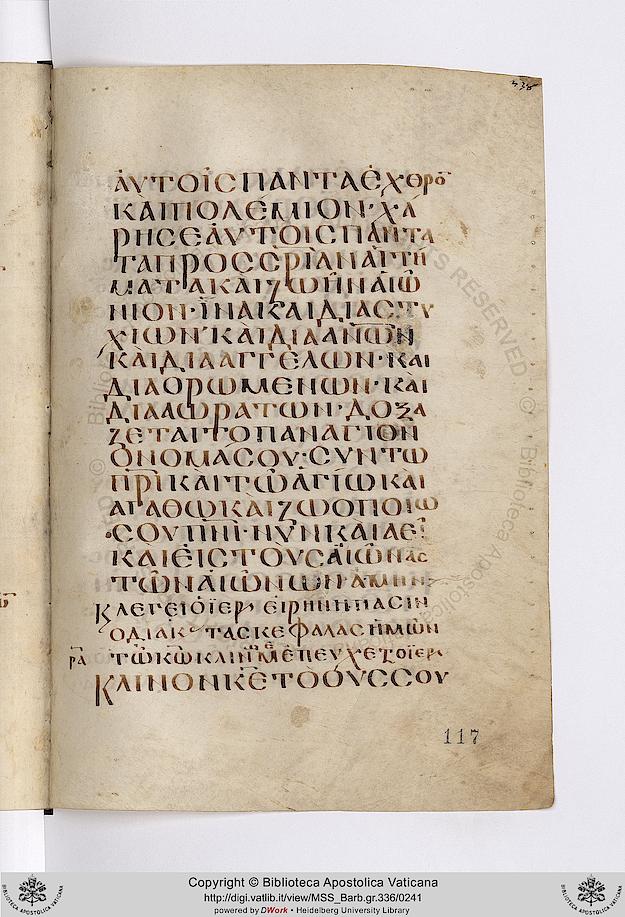 ΑΥΤΟΙΣ ΠΑΝΤΑ ΕΧΘΡΟ̅
ΚΑΙ ΠΟΛΕΜΙΟΝ· ΧΑ
ΡΗΣΕ ΑΥΤΟΙΣ ΠΑΝΤΑ
ΤΑ ΠΡΟΣ Σ̅Ρ̅Ι̅ΑΝ ΑΙΤΗ
ΜΑΤΑ ΚΑΙ ΖΩΗΝ ΑΙΩ
ΝΙΟΝ· ΙΝΑ ΚΑΙ ΔΙΑ ΣΤΥ
ΧΙΩΝ ΚΑΙ ΔΙΑ Α̅Ν̅Ω̅Ν̅
ΚΑΙ ΔΙΑ ΑΓΓΕΛΩΝ· ΚΑΙ
ΔΙΑ ΟΡΩΜΕΝΩΝ· ΚΑΙ
ΔΙΑ ΑΩΡΑΤΩΝ· ΔΟΞΑ
ΖΕΤΑΙ ΤΟ ΠΑΝΑΓΙΟΝ
ΟΝΟΜΑ ΣΟΥ· ΣΥΝ ΤΩ
Π̅Ρ̅Ι̅ ΚΑΙ ΤΩ ΑΓΙΩ ΚΑΙ
ΑΓΑΘΩ ΚΑΙ ΖΩΟΠΟΙΩ
·ΣΟΥ Π̅Ν̅Ι̅· ΝΥΝ ΚΑΙ ΑΕΙ
ΚΑΙ ΕΙΣ ΤΟΥΣ ΑΙΩΝΑΣ
ΤΩΝ ΑΙΩΝΩΝ· ΑΜΗΝ·
Κ ΛΕΓΕΙ Ο ΙΕΡ ΕΙΡΗΝΗ ΠΑΣΙΝ
Ο ΔΙΑΚ ΤΑΣ ΚΕΦΑΛΑΣ ΗΜΩΝ
ΤΩ Κ̅Ω̅ ΚΛΙΝ ΜΕ ΕΠΕΥΧΕΤ Ο ΙΕΡ
ΚΛΙΝΟΝ Κ̅Ε̅ ΤΟ ΟΥΣ ΣΟΥ
117
Copyright © Biblioteca Apostolica Vaticana
http://digi.vatlib.it/view/MSS_Barb.gr.336/0241
powered by DWork • Heidelberg University Library